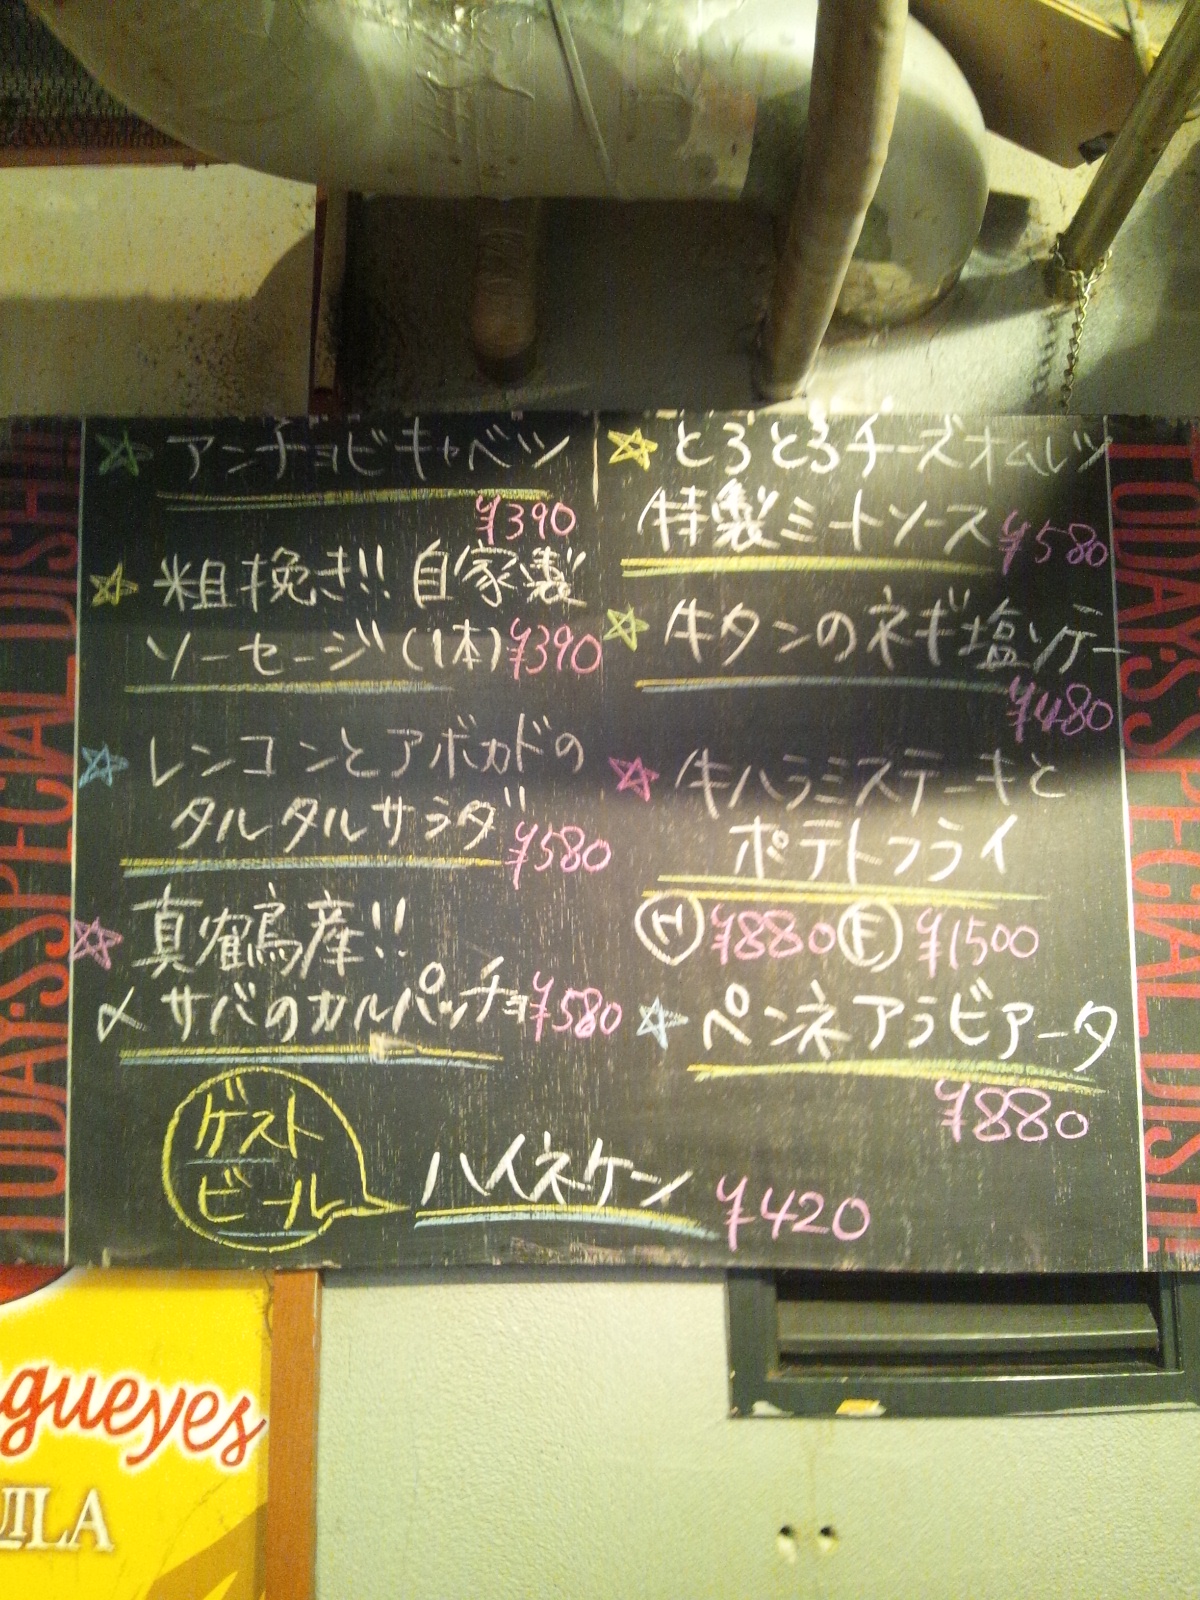 アンチョビキャベツ
¥390
粗挽き!! 自家製
ソーセージ(1本)¥390
レンコンとアボカドの
タルタルサラダ ¥580
真鶴産!!
〆サバのカルパッチョ¥580
とろとろチーズオムレツ
特製ミートソース¥580
牛タンのネギ塩ソテー
¥480
牛ハラミステーキと
ポテトフライ
Ⓗ ¥880 Ⓕ ¥1500
ペンネアラビアータ
¥880
ゲスト
ビール
ハイネケン ¥420
TODAY'S SPECIAL DISH!!
TODAY'S SPECIAL DISH!!
gueyes
UILA